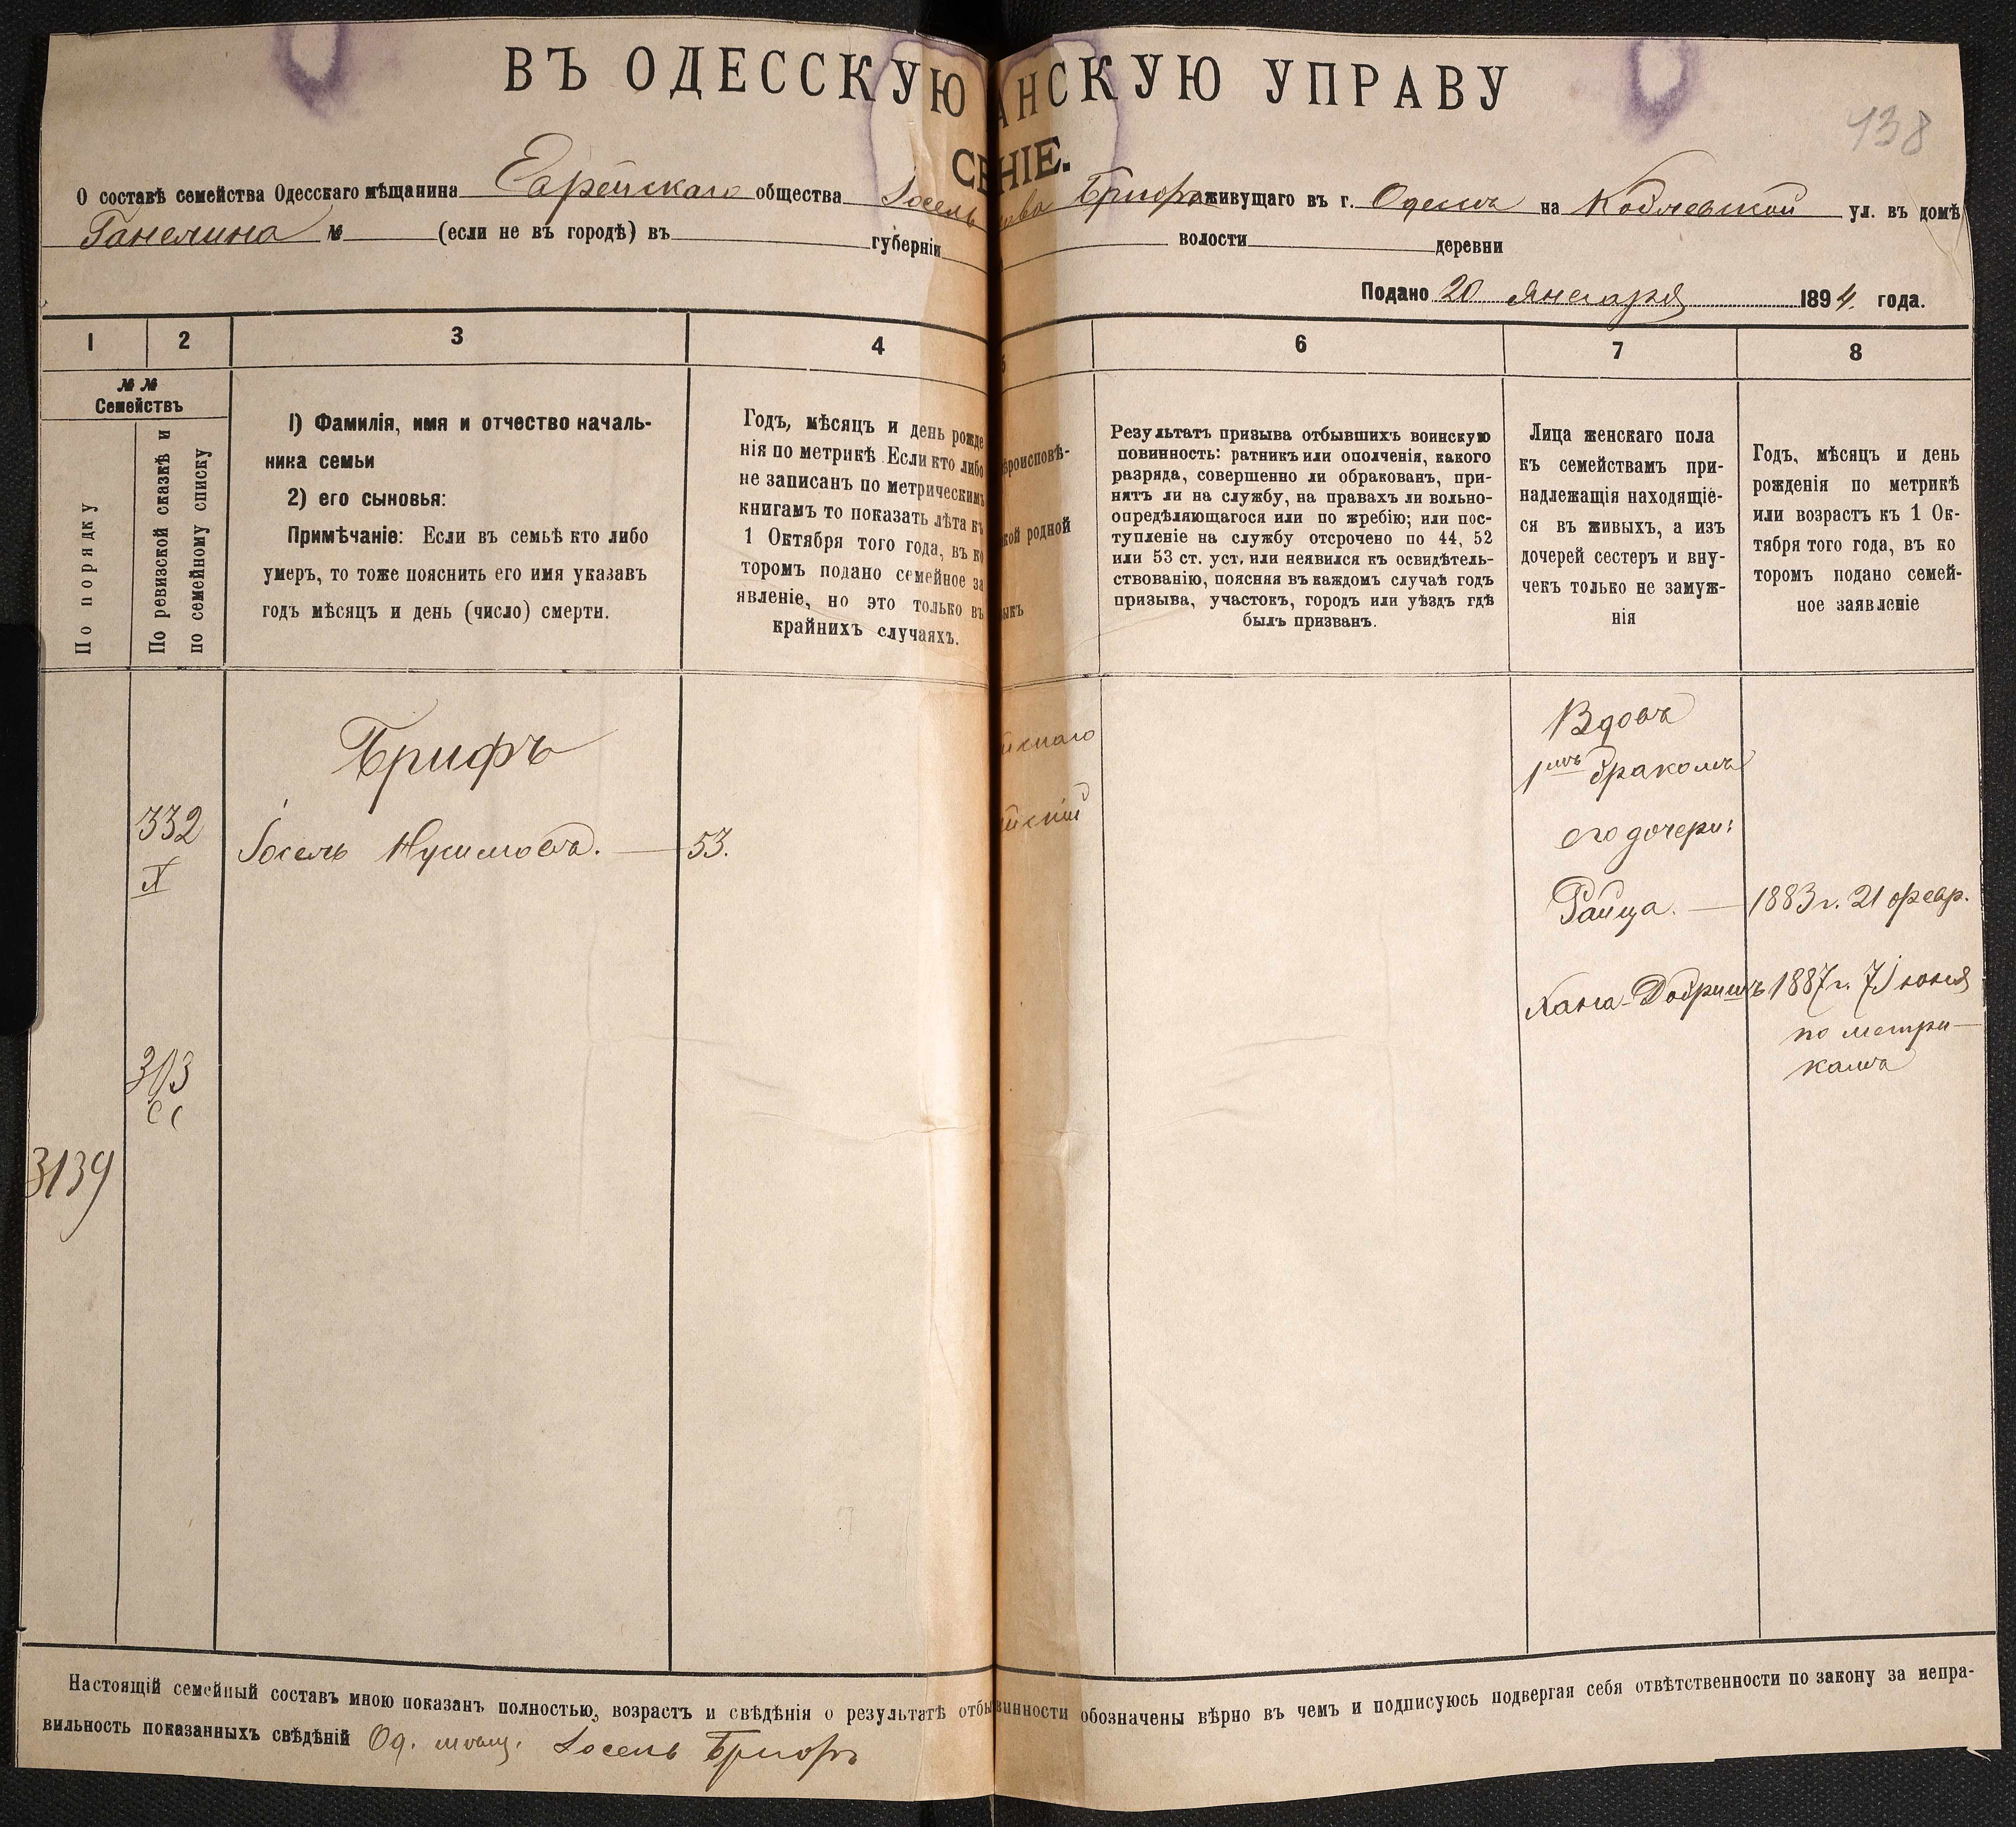 ВЪ ОДЕССКУЮ АНСКУЮ УПРАВУ
438
СЕНІЕ.
О составѣ семейства Одесскаго мѣщанина Еврейскаго общества Іосель Брифъ живущаго въ г. Одессѣ на Коблевской ул. въ домѣ
Ганелина № (если не въ городѣ) въ губерніи волости деревни
Подано 20 Января 1894. года.
1 2 3 4 5 6 7 8
№ №
Семействъ
По порядку
По ревизской сказкѣ и
по семейному списку
1) Фамилія, имя и отчество началь-
ника семьи
2) его сыновья:
Примѣчаніе: Если въ семьѣ кто либо
умеръ, то тоже пояснить его имя указавъ
годъ мѣсяцъ и день (число) смерти.
Годъ, мѣсяцъ и день рожде
нія по метрикѣ. Если кто либо
не записанъ по метрическимъ
книгамъ то показать лѣта къ
1 Октября того года, въ ко
торомъ подано семейное за
явленіе, но это только въ
крайнихъ случаяхъ.
ѣроисповѣ-
кой родной
ыкъ
Результатъ призыва отбывшихъ воинскую
повинность: ратникъ или ополченія, какого
разряда, совершенно ли обракованъ, при-
нятъ ли на службу, на правахъ ли вольно-
опредѣляющагося или по жребію; или пос-
тупленіе на службу отсрочено по 44, 52
или 53 ст. уст. или неявился къ освидѣтель-
ствованію, поясняя въ каждомъ случаѣ годъ
призыва, участокъ, городъ или уѣздъ гдѣ
былъ призванъ.
Лица женскаго пола
къ семействамъ при-
надлежащія находящіе-
ся въ живыхъ, а изъ
дочерей сестеръ и вну-
чекъ только не замуж-
нія
Годъ, мѣсяцъ и день
рожденія по метрикѣ
или возрастъ къ 1 Ок-
тября того года, въ ко
торомъ подано семей-
ное заявленіе
Брифъ
332
X
Іосель Нусимовъ. — 53.
йскаго
йскій
Вдовъ
1мъ бракомъ
его дочери:
Раица. — 1883 г. 21 февр.
Хана-Добришъ 1887 г. 7 Іюня
по метри-
камъ
303
3139
Настоящій семейный составъ мною показанъ полностью, возрастъ и свѣдѣнія о результатѣ отбы винности обозначены вѣрно въ чемъ и подписуюсь подвергая себя отвѣтственности по закону за непра-
вильность показанныхъ свѣдѣній Од. мѣщ. Іосель Брифъ